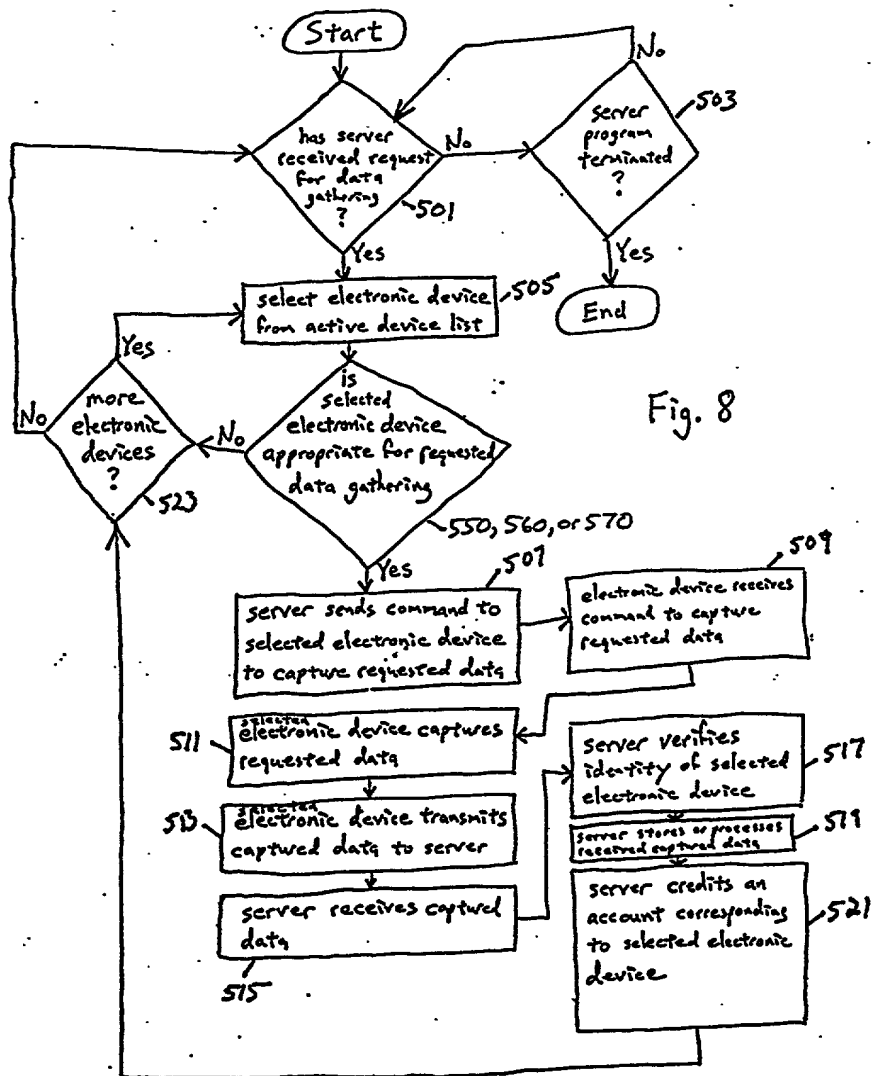 Start
No
has server
received request
for data
gathering
?
No
501
Yes
server
program
terminated
?
503
Yes
End
select electronic device
from active device list
505
Yes
more
electronic
devices
?
No
523
No
is
selected
electronic device
appropriate for requested
data gathering
550, 560, or 570
Yes
Fig. 8
507
server sends command to
selected electronic device
to capture requested data
509
electronic device receives
command to capture
requested data
511
selected
electronic device captures
requested data
513
selected
electronic device transmits
captured data to server
server receives captured
data
515
server verifies
identity of selected
electronic device
517
server stores or processes
received captured data
519
server credits an
account corresponding
to selected electronic
device
521